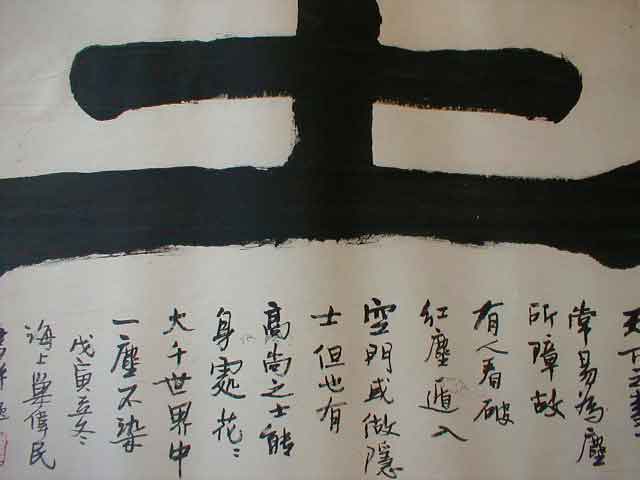 常易為塵
所障故
有人看破
紅塵遁入
空門或做隱
士但也有
高尚之士能
身處花〻
大千世界中
一塵不染
戊寅立冬
海上巢偉民